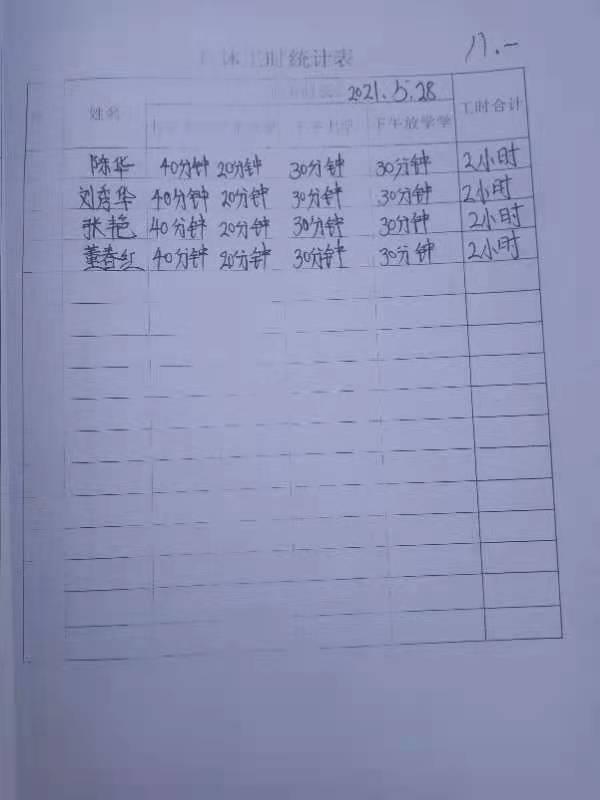 时统计表
八.一
2021.5.28
姓名 工时合计
下午放学学
陈华 40分钟 20分钟 30分钟 30分钟 2小时
刘秀华 40分钟 20分钟 30分钟 30分钟 2小时
张艳 40分钟 20分钟 30分钟 30分钟 2小时
董春红 40分钟 20分钟 30分钟 30分钟 2小时